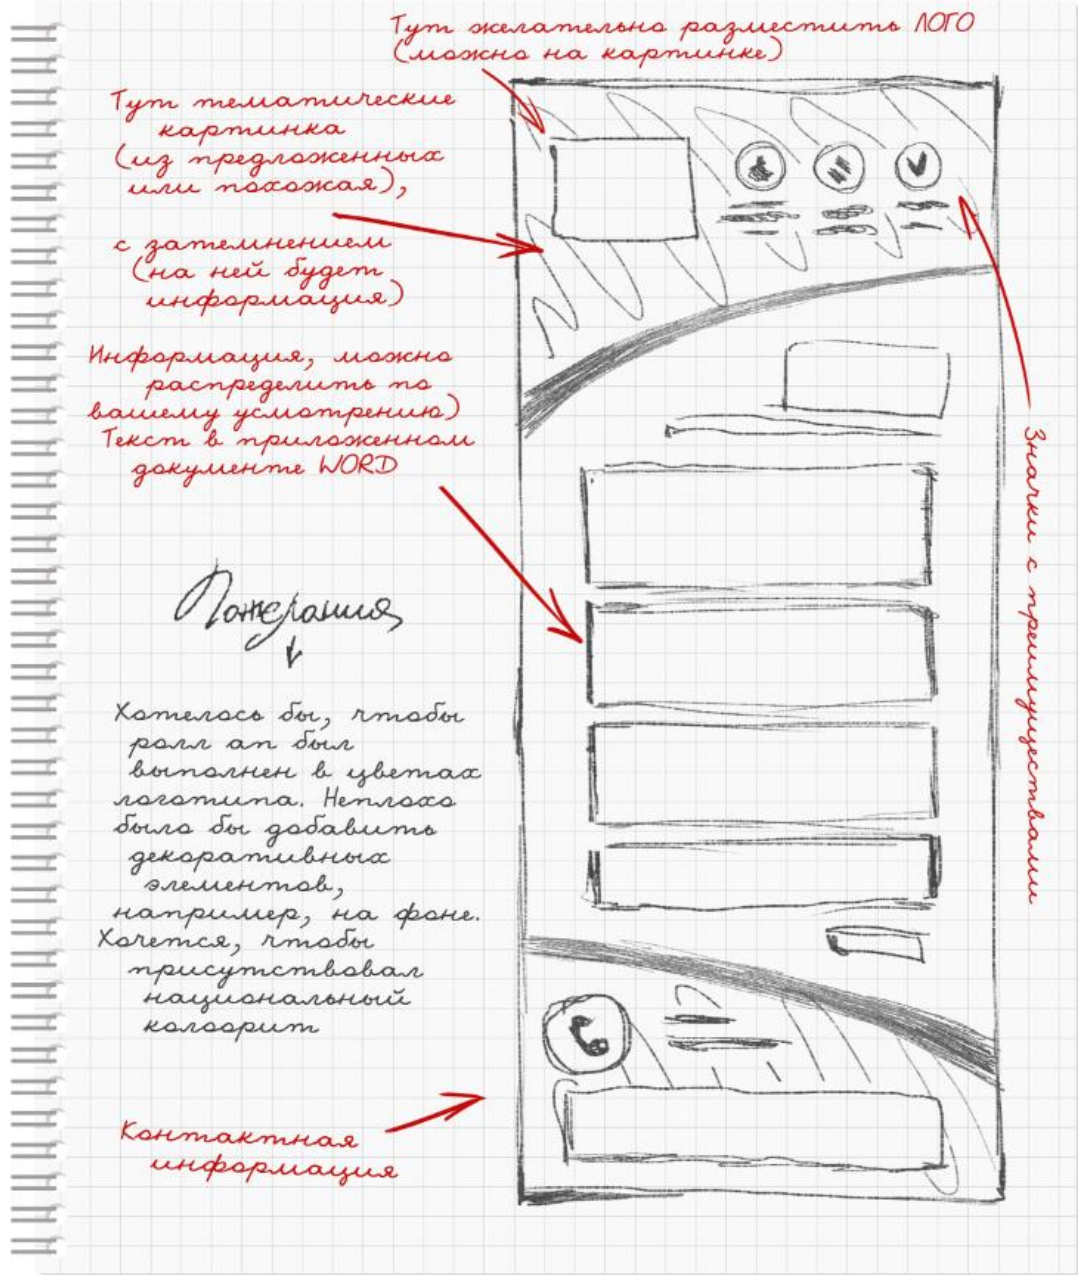 Тут желательно разместить ЛОГО
(можно на картинке)
Тут тематические
картинка
(из предложенных
или похожая),
с затемнением
(на ней будет
информация)
Информация, можно
распределить по
вашему усмотрению)
Текст в приложенном
документе WORD
Значки с преимуществами
Пожелания
Хотелось бы, чтобы
ролл ап был
выполнен в цветах
логотипа. Неплохо
было бы добавить
декоративных
элементов,
например, на фоне.
Хочется, чтобы
присутствовал
национальный
колорит
Контактная
информация